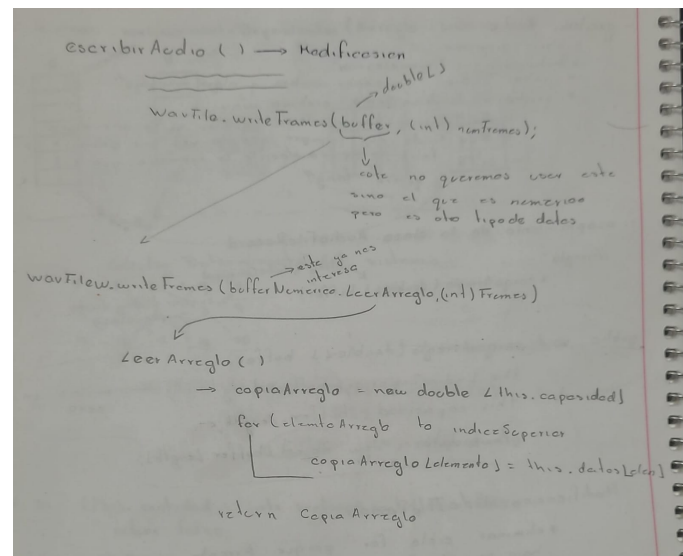 escribirAudio ( ) → Modificasion
double[]
wavFile.writeFrames(buffer, (int) numFrames);
este no queremos usar este
sino el que es numerico
pero es otro tipo de datos
este ya nos
interesa
wavFileW.writeFrames (bufferNumerico.LeerArreglo,(int) Frames)
LeerArreglo ( )
→ copiaArreglo = new double [this.capasidad]
for (elemtoArreglo to indiceSuperior
copiaArreglo[elemento] = this.datos[elem]
return CopiaArreglo